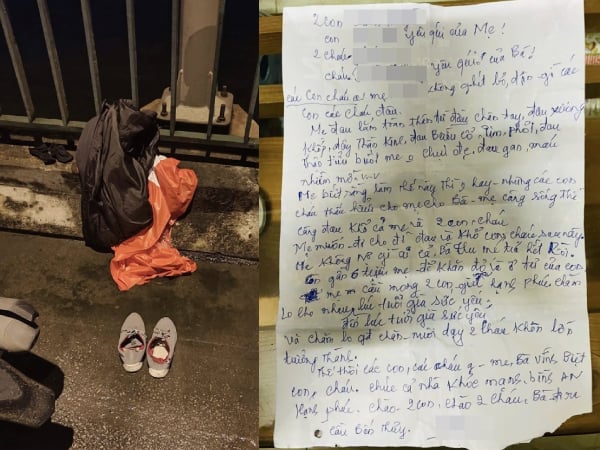 2 con
con yêu quí của Mẹ!
2 cháu
cháu yêu quí của Bà!
không ghét bỏ, giận gì các
các con cháu ơi mẹ
con các cháu đâu.
Mẹ đau lắm toàn thân từ đầu chân tay, đau xương
khớp, dây thần kinh, đau Bướu cổ, Tim, phổi, đau
máu
nhiễm mỡ v.v
Mẹ biết rằng làm thế này thì o hay - nhưng các con
cháu thấu hiểu cho mẹ cho Bà - mẹ càng sống thì
càng đau khổ cả mẹ và 2 con, cháu
Mẹ muốn đi cho đỡ đau và khổ con cháu sau này.
Mẹ không nợ gì ai cả, bà thu mẹ trả hết rồi.
còn gần 6 triệu mẹ để khăn đỏ là ở tủ của con
mẹ cầu mong 2 con giữ hạnh phúc, chăm
lo cho nhau lúc tuổi già sức yếu.
đến lúc tuổi già sức yếu
và chăm lo chăn nuôi dạy 2 cháu khôn lớn
trưởng thành.
Thế thôi các con, các cháu ạ - mẹ, Bà vĩnh biệt
con, cháu. chúc cả nhà khỏe mạnh, bình AN
Hạnh phúc. chào 2 con, chào 2 cháu, Bà đi ra
cầu Bến thủy.